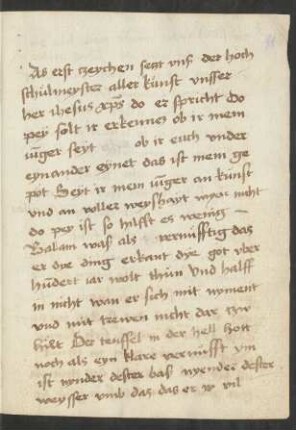 Das erst zeychen seczt uns der hoch
schulmeyster aller kunst unsser
her ihesus xps do er spricht do
pey solt ir erkennen ob ir mein
iunger seyt ob ir euch under
eynander eynet das ist mein ge
pot Seyt ir mein iunger an kunst
und an voller weyshayt mynn nicht
do pey ist so hilfft es wenig
Balam was als vernufftig das
er die ding erkant dye got uber
hundert iar wolt thun und halff
in nicht wan er sich mit nyment
und mit trewen nicht dar zw
hilt Der teuffel in der hell hott
noch als eyn klare vernufft ym
ist nynder dester bas nyender dester
weysser umb das das er vil